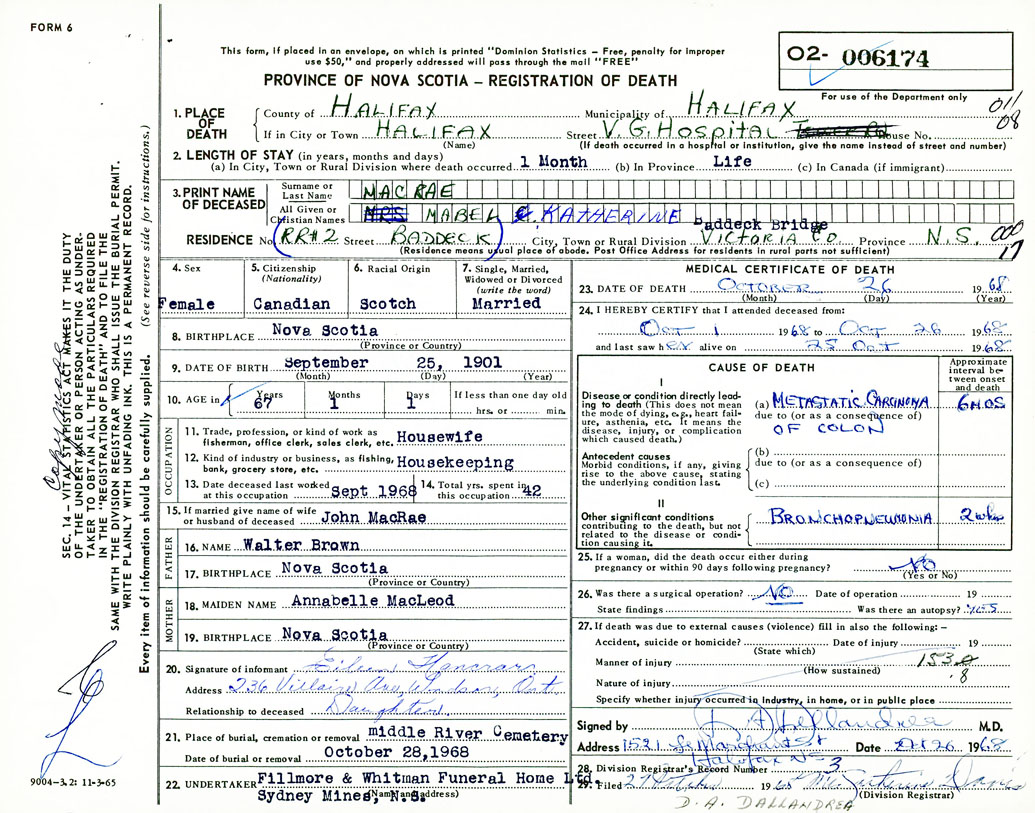 FORM 6
This form, if placed in an envelope, on which is printed "Dominion Statistics – Free, penalty for improper
use $50," and properly addressed will pass through the mail "FREE"
PROVINCE OF NOVA SCOTIA – REGISTRATION OF DEATH
02- 006174
For use of the Department only
011
08
1. PLACE OF DEATH
County of HALIFAX Municipality of HALIFAX
If in City or Town HALIFAX Street V. G. HOSPITAL House No.
(Name) (If death occurred in a hospital or institution, give the name instead of street and number)
2. LENGTH OF STAY (in years, months and days)
(a) In City, Town or Rural Division where death occurred 1 Month (b) In Province Life (c) In Canada (if immigrant)
3. PRINT NAME OF DECEASED
Surname or Last Name MACRAE
All Given or Christian Names MRS MABEL C. KATHERINE
Baddeck Bridge
RESIDENCE No. (RR#2 Street BADDECK) City, Town or Rural Division VICTORIA CO. Province N.S.
000
17
(Residence means usual place of abode. Post Office Address for residents in rural parts not sufficient)
4. Sex
Female
5. Citizenship
(Nationality)
Canadian
6. Racial Origin
Scotch
7. Single, Married,
Widowed or Divorced
(write the word)
Married
8. BIRTHPLACE Nova Scotia
(Province or Country)
9. DATE OF BIRTH September 25, 1901
(Month) (Day) (Year)
10. AGE in Years Months Days If less than one day old
67 1 1 hrs. or min.
OCCUPATION
11. Trade, profession, or kind of work as
fisherman, office clerk, sales clerk, etc. Housewife
12. Kind of industry or business, as fishing,
bank, grocery store, etc. Housekeeping
13. Date deceased last worked
at this occupation Sept 1968
14. Total yrs. spent in
this occupation 42
15. If married give name of wife
or husband of deceased John MacRae
FATHER
16. NAME Walter Brown
17. BIRTHPLACE Nova Scotia
(Province or Country)
MOTHER
18. MAIDEN NAME Annabelle MacLeod
19. BIRTHPLACE Nova Scotia
(Province or Country)
20. Signature of informant Eileen
Address 236 Villaire Ave, Windsor, Ont.
Relationship to deceased Daughter
21. Place of burial, cremation or removal middle River Cemetery
Date of burial or removal October 28,1968
22. UNDERTAKER Fillmore & Whitman Funeral Home Ltd.
Sydney Mines, N.S.
(Name and address)
MEDICAL CERTIFICATE OF DEATH
23. DATE OF DEATH OCTOBER 26 1968
(Month) (Day) (Year)
24. I HEREBY CERTIFY that I attended deceased from:
Oct 1 1968 to Oct 26 1968
and last saw her alive on 25 Oct 1968
CAUSE OF DEATH
Approximate
interval be-
tween onset
and death
I
Disease or condition directly lead-
ing to death (This does not mean
the mode of dying, e.g., heart fail-
ure, asthenia, etc. It means the
disease, injury, or complication
which caused death.)
(a) METASTATIC CARCINOMA 6 MOS
due to (or as a consequence of)
OF COLON
Antecedent causes
Morbid conditions, if any, giving
rise to the above cause, stating
the underlying condition last.
(b)
due to (or as a consequence of)
(c)
II
Other significant conditions
contributing to the death, but not
related to the disease or condi-
tion causing it.
BRONCHOPNEUMONIA 2 wks
25. If a woman, did the death occur either during
pregnancy or within 90 days following pregnancy? NO
(Yes or No)
26. Was there a surgical operation? NO Date of operation 19
State findings Was there an autopsy? YES
27. If death was due to external causes (violence) fill in also the following: –
Accident, suicide or homicide? Date of injury 19
(State which)
Manner of injury
(How sustained)
153.
.8
Nature of injury
Specify whether injury occurred in industry, in home, or in public place
Signed by D. A. Dallandrea M.D.
Address 1521 LeMarchant St Date Oct 26 1968
Halifax N-3
28. Division Registrar's Record Number
29. Filed 27 October 1968
(Division Registrar)
D. A. DALLANDREA
SEC. 14 – VITAL STATISTICS ACT MAKES IT THE DUTY
OF THE UNDERTAKER OR PERSON ACTING AS UNDER-
TAKER TO OBTAIN ALL THE PARTICULARS REQUIRED
IN THE "REGISTRATION OF DEATH" AND TO FILE THE
SAME WITH THE DIVISION REGISTRAR WHO SHALL ISSUE THE BURIAL PERMIT.
WRITE PLAINLY WITH UNFADING INK. THIS IS A PERMANENT RECORD.
Every item of information should be carefully supplied. (See reverse side for instructions.)
9004-3.2: 11-3-65